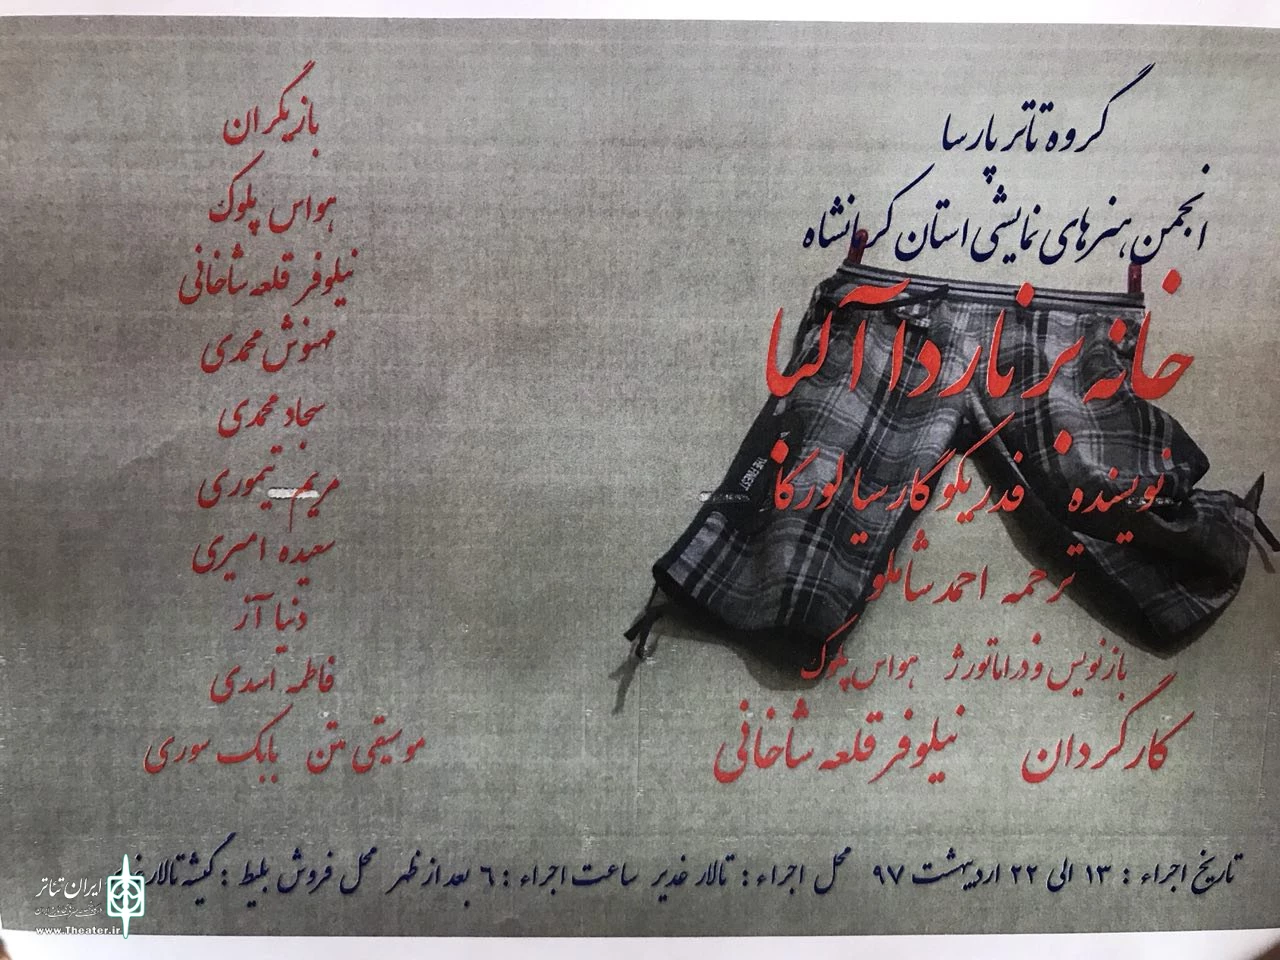 گروه تاتر پارسا
انجمن هنرهای نمایشی استان کرمانشاه
خانه برناردا آلبا
نویسنده فدریکو گارسیا لورکا
ترجمه احمد شاملو
بازنویس و دراماتورژ هواس پلوک
کارگردان نیلوفر قلعه شاخانی
بازیگران
هواس پلوک
نیلوفر قلعه شاخانی
مهنوش محمدی
سجاد محمدی
مریم تیموری
سعیده امیری
دنیا آژ
فاطمه اسدی
موسیقی متن بابک سوری
تاریخ اجراء : ۱۳ الی ۲۲ اردیبهشت ۹۷ محل اجراء : تالار غدیر ساعت اجراء : ۶ بعد از ظهر محل فروش بلیط : گیشه تالار
THE FINEST
ایران تئاتر
www.Theater.ir